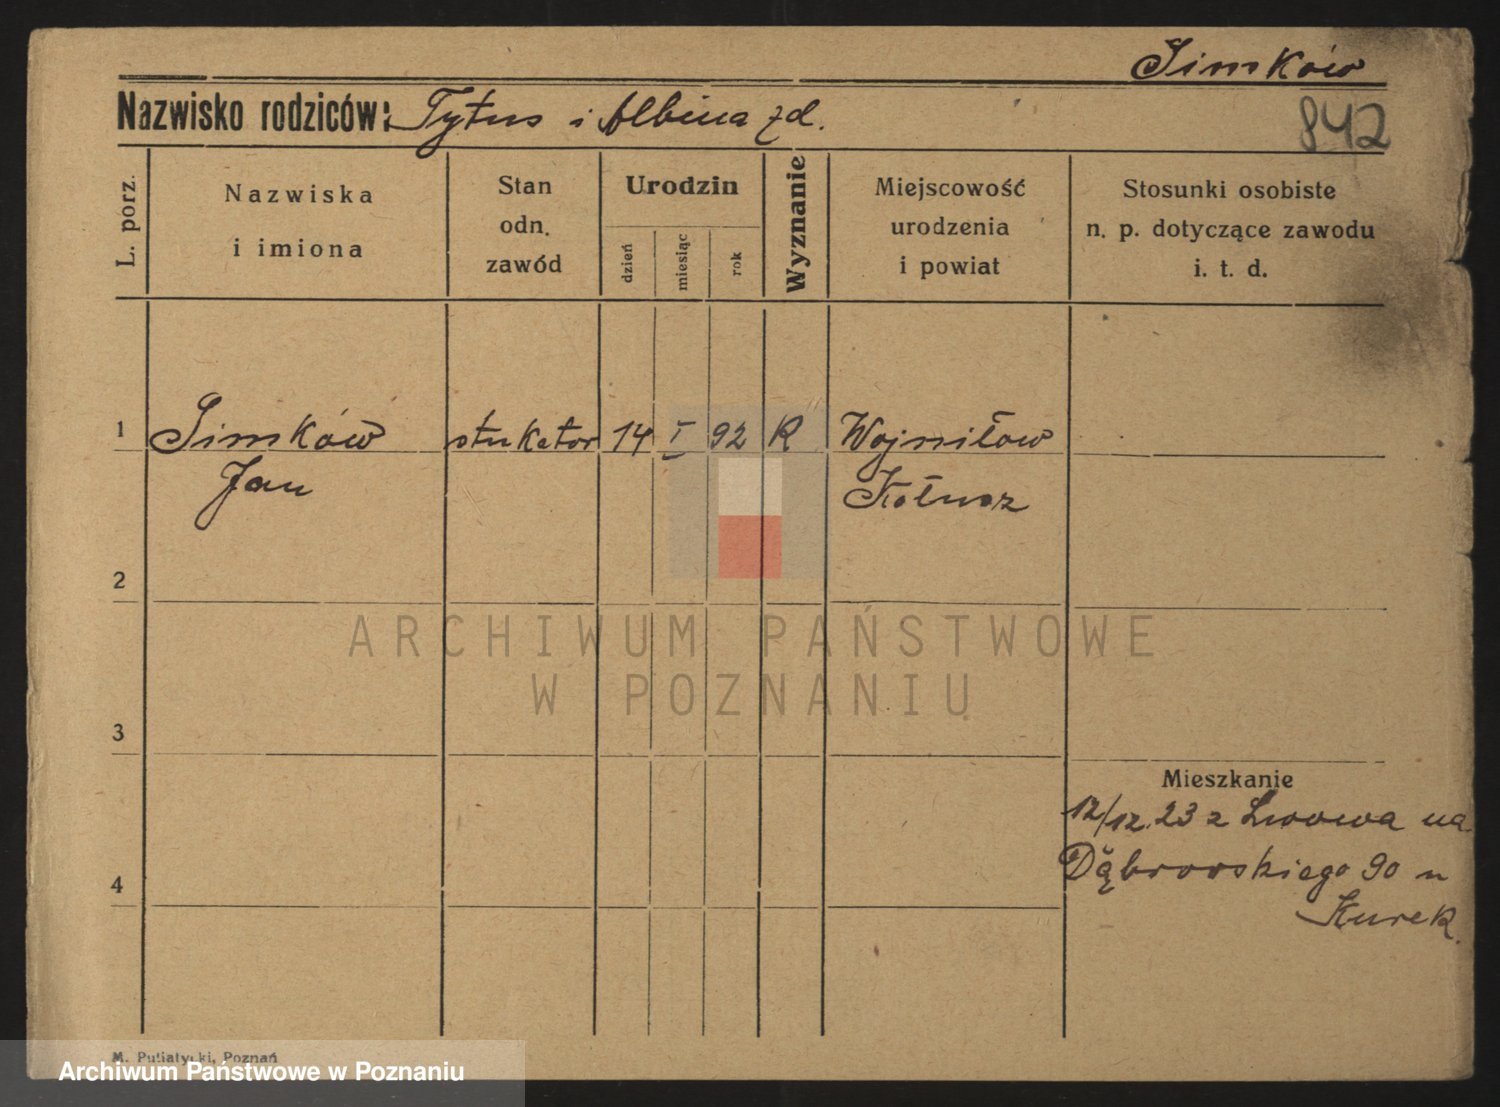 Simków
Nazwisko rodziców: Tytus i Albina zd.
842
L. porz.
Nazwiska
i imiona
Stan
odn.
zawód
Urodzin
dzień
miesiąc
rok
Wyznanie
Miejscowość
urodzenia
i powiat
Stosunki osobiste
n. p. dotyczące zawodu
i. t. d.
1 Simków stukator 14 I 92 R Wojniłow
Jan Kałusz
2
ARCHIWUM PAŃSTWOWE
W POZNANIU
3
Mieszkanie
12/12. 23 z Lwowa na
Dąbrowskiego 90 u
4
Kurek.
M. Putiatycki, Poznań
Archiwum Państwowe w Poznaniu